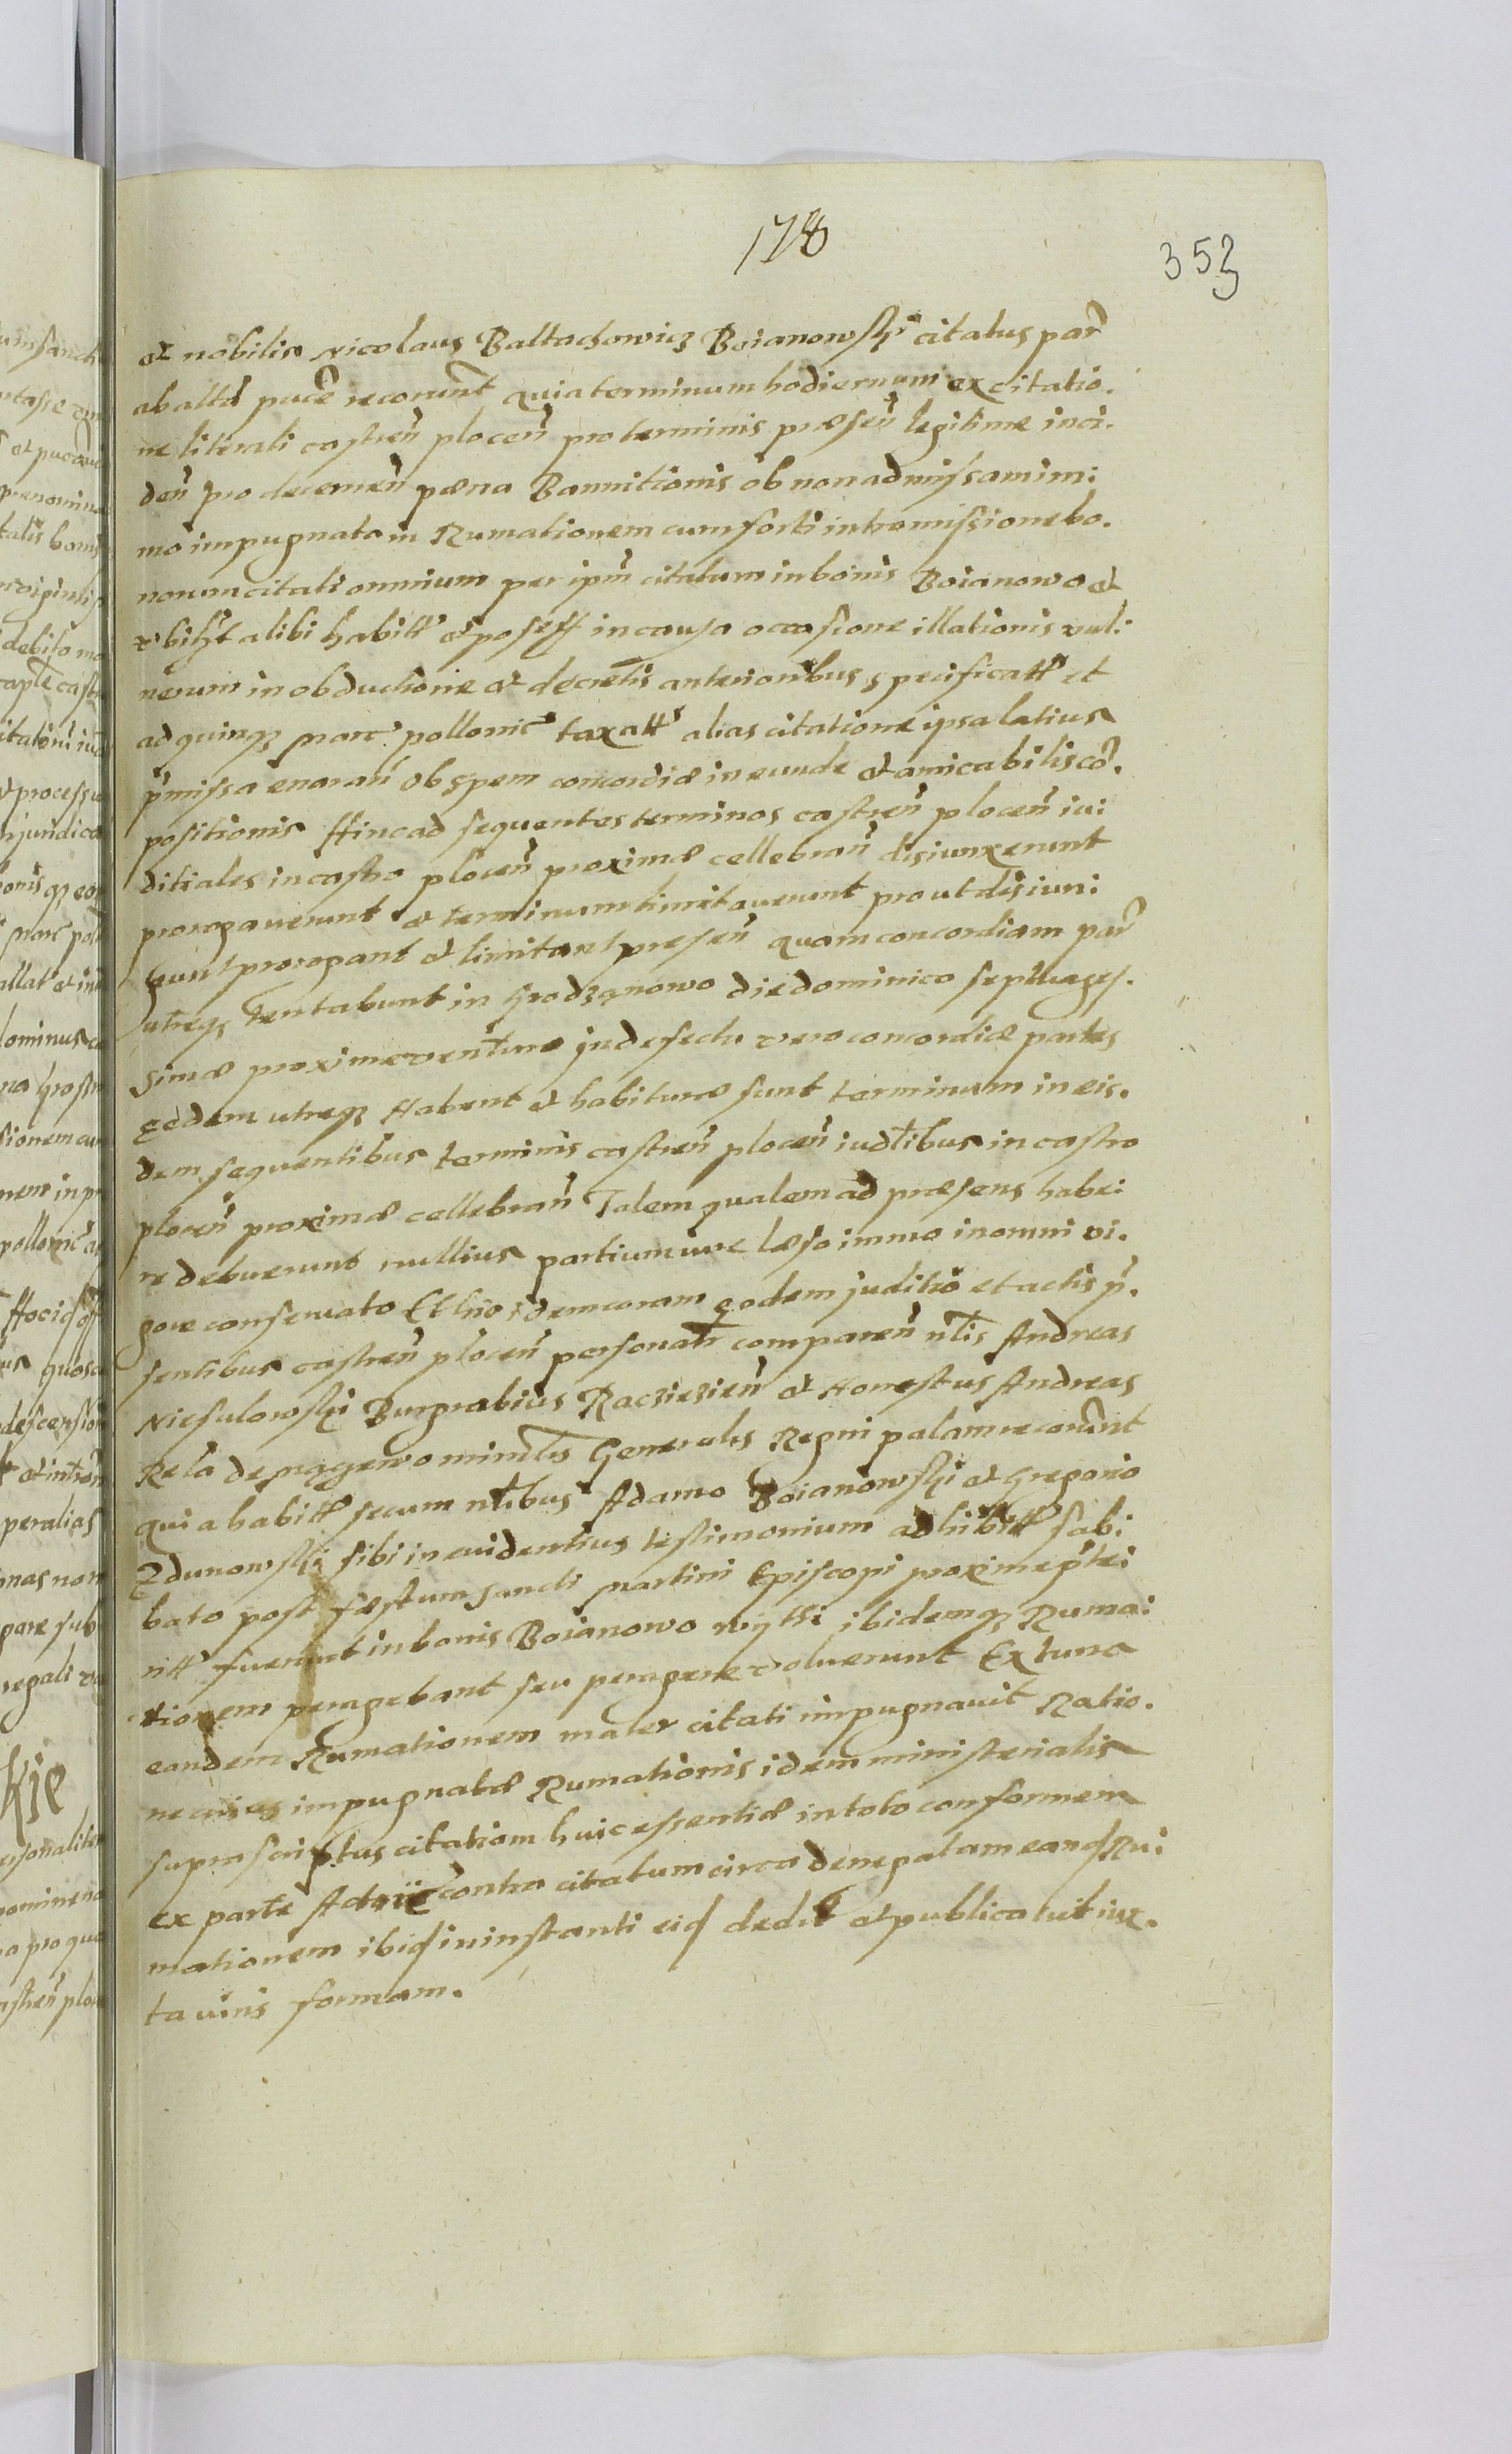 178
353
et nobilis Nicolaus Baltachowicz Boianowski citatus par
ab alt puce recorunt quia terminum hodiernum ex citatio.
ne literali castren plocen pro terminis præsen legitime inci.
den pro decernen pæna Bannitionis ob non admissam im:
mo impugnatam Rumationem cum forti intromissione bo.
norum citati omnium per ipm citatum in bonis Boianowo et
vbilzt alibi habitt et possess in causa occasione illationis vul:
nerum in obductione et decretis anterioribus specificatt et
ad quinq marc pollonic taxatt alias citatione ipsa latius
pmissa enaran ob spem concordiæ ineunde et amicabilis cō.
positionis Hinc ad sequentes terminos castren plocen iu:
ditiales in castro plocen proximæ cellebran disiunxerunt
prorogaverunt et terminum limitaverunt prout disiun:
gunt prorogant et limitant presen quam concordiam par
utreq tentabunt in Grodzanowo die dominico septuages.
simæ proxime venturæ In defectu vero concordiæ partes
eædem utreq Habent et habituræ sunt terminum in eis.
dem sequentibus terminis castren plocen iudtibus in castro
plocen proximæ cellebran Talem qualem ad præsens habe:
re debuerunt nullius partium iure læso immo in omni vi.
gore conservato Et hic idem coram eodem juditio et actis p.
sentibus castren plocen personatr comparen ntis Andreas
Niesulowski Burgrabius Racziezien et Honestus Andreas
Rela de minitlis Generalis Regni palam recorunt
quia habitt secum ntibus Adamo Boianowski et Gregorio
Zdunowski sibi in euidentius testimonium adhibitt sabi
bato post fæstum Sancti Martini Episcopi proxime ptei
ritt fuerunt in bonis Boianowo wythi ibidemq Ruma:
tionem peragebant seu peragere voluerunt Ex tunc
eandem Rumationem mater citati impugnauit Ratio.
ne cuius impugnatæ Rumationis idem ministerialis
suprascriptus citationem huic essentiæ in toto conformem
ex parte Actricæ contra citatum circa denegatam eand Ru:
mationem ibid in instanti eid dedit et publicavit iux.
ta iuris formam.